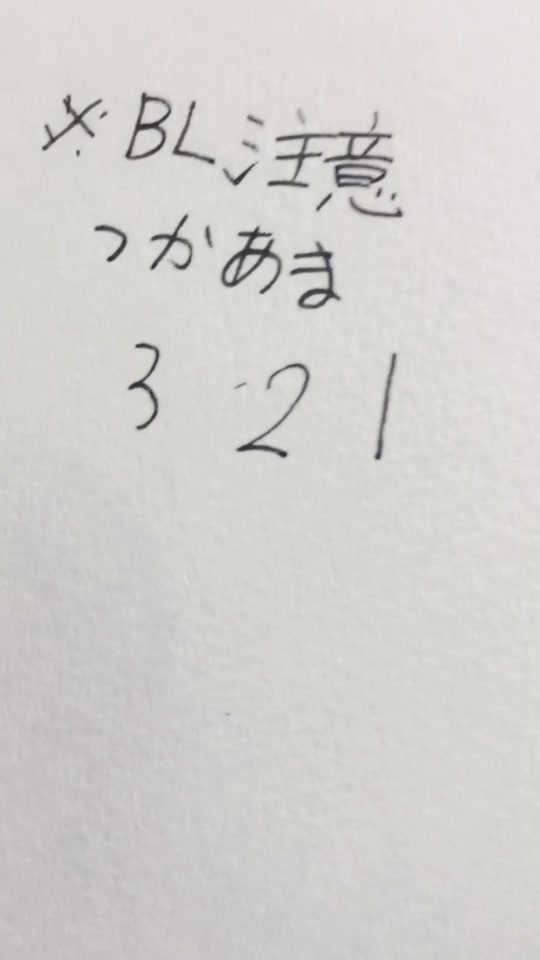 ※BL注意
つかあま
3 2 1